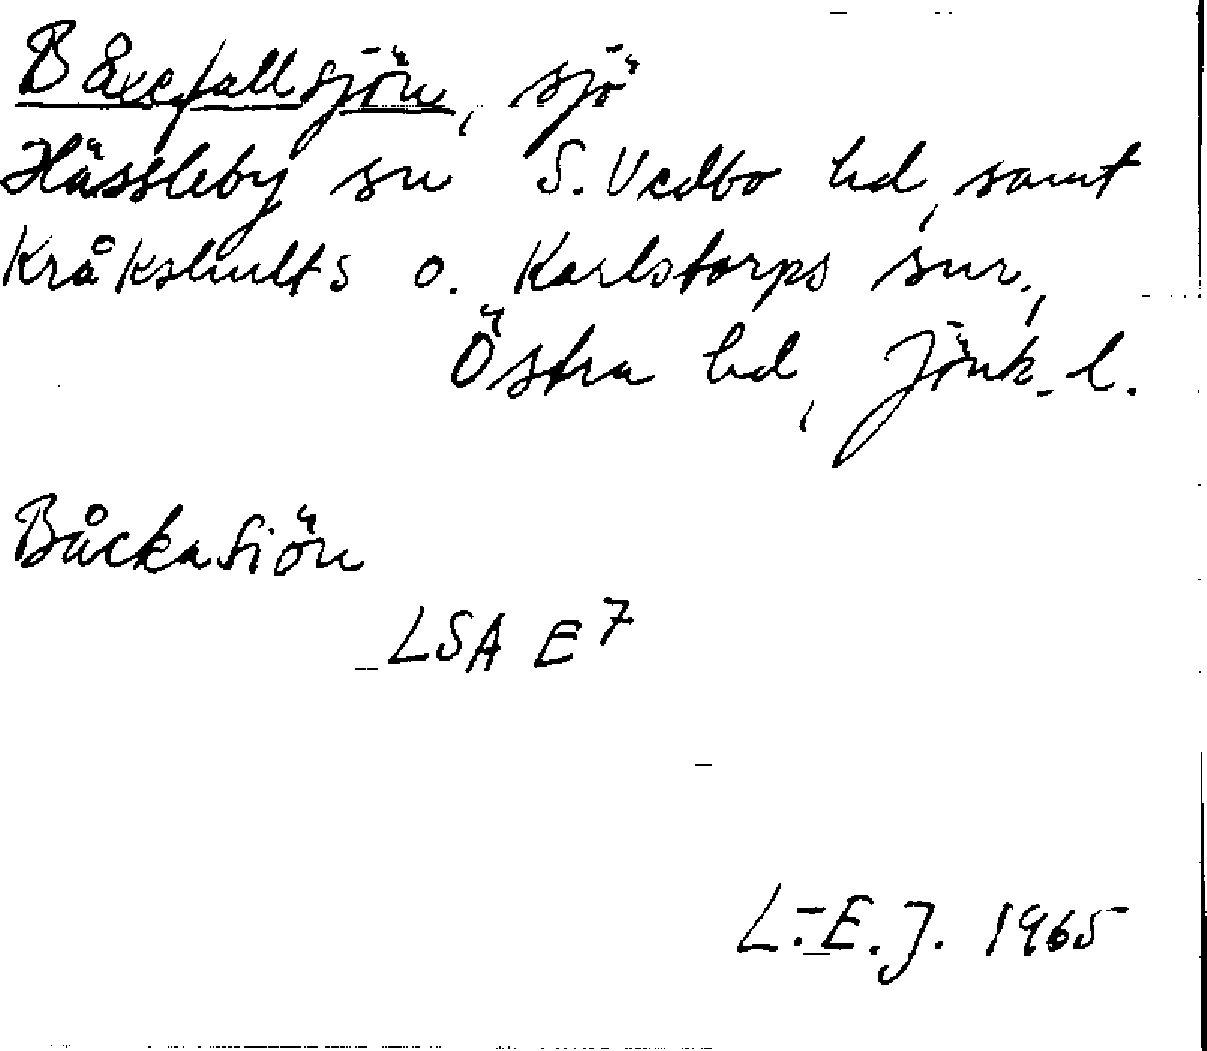 Båxefallsjön, sjö
Hässleby sn S. Vedbo hd, samt
Kråkshults o. Karlstorps snr,
Östra hd, Jönk. l.
Båckasiön
LSA E7
L.-E. J. 1965